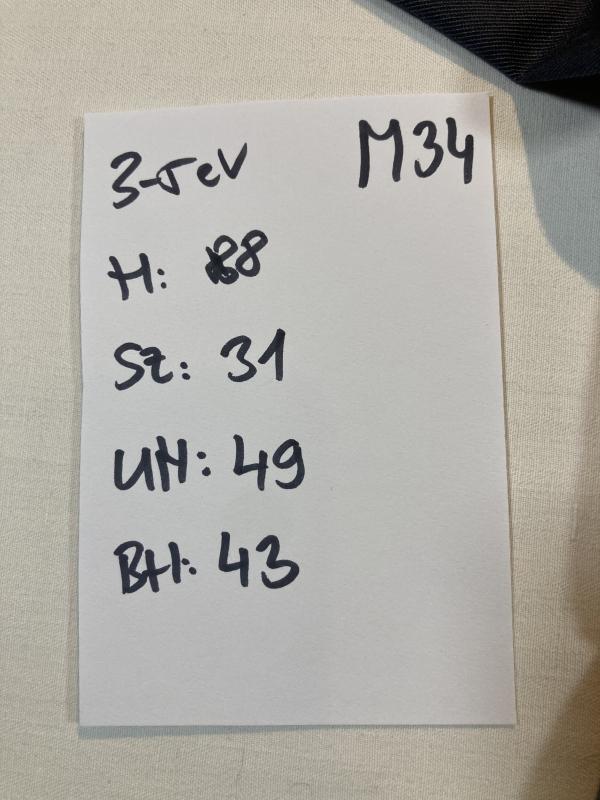 3-JeV M34
H: 88
Sz: 31
UH: 49
BH: 43